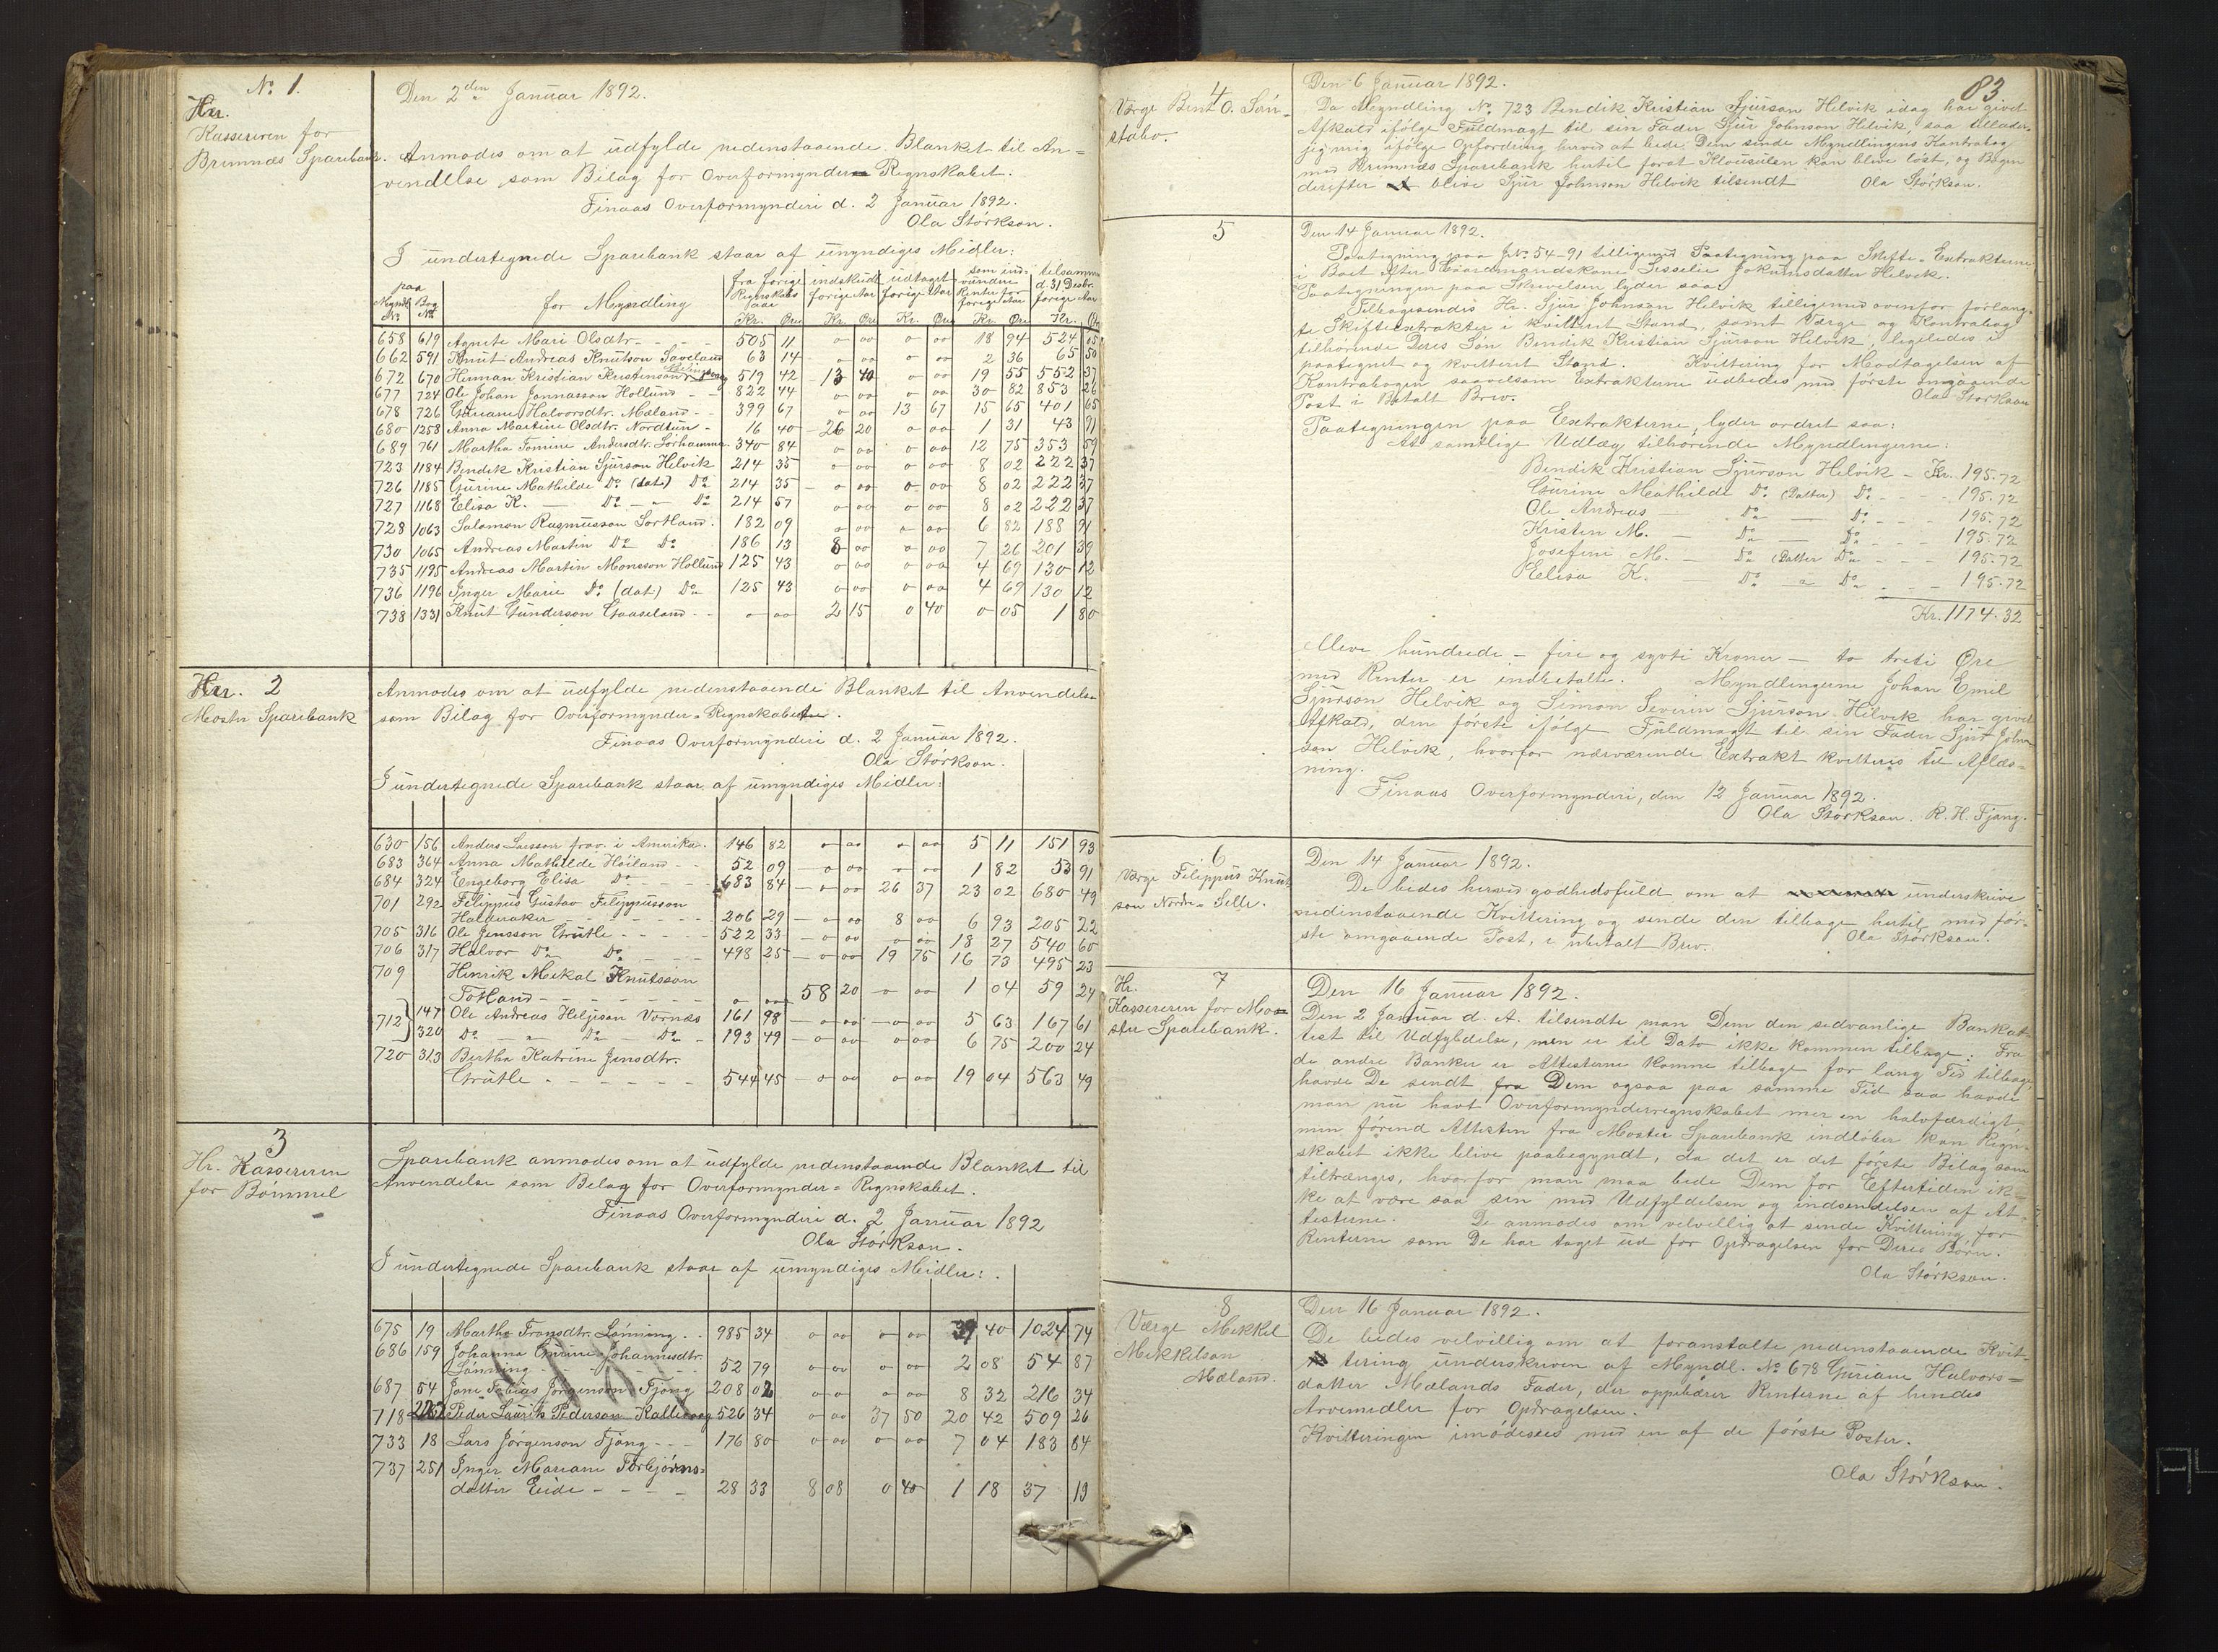 No. 1.
Hr.
Kassereren for
Bremnæs Sparebank.
Den 2den Januar 1892.
Anmodes om at udfylde nedenstaaende Blanket til An=
vendelse som Bilag for Overformynder Regnskabet.
Finaas Overformynderi d. 2 Januar 1892.
Ola Størkson.
I undertegnede Sparebank staar af umyndiges Midler:
paa
Myndl. No Bog No for Myndling fra forige Regnskabs aar indskudt forige Aar udtaget forige Aar som ind- vundne Renter for forige Aar tilsammen d. 31 Desbr. forige Aar
Kr. Øre Kr. Øre Kr. Øre Kr. Øre Kr. Øre
658 619 Agnete Mari Olsdtr. - - - 505 11 o oo o oo 18 94 524 05
662 591 Knut Andreas Knutson Søveland 63 14 o oo o oo 2 36 65 50
672 670 Herman Kristian Kristenson 519 42 13 40 o oo 19 55 552 37
677 724 Ole Johan Jonnasson Hollund - - 822 44 o oo o oo 30 82 853 26
678 726 Guriane Halvorsdtr. Mæland - - 399 67 o oo 13 67 15 65 401 65
680 1258 Anna Martine Olsdtr. Nordtun - 16 40 26 20 o oo 1 31 43 91
689 761 Martha Tomine Andersdtr. Sørhammer. 340 84 o oo o oo 12 75 353 59
723 1184 Bendik Kristian Sjurson Helvik 214 35 o oo o oo 8 02 222 37
726 1185 Gurine Mathilde Do (dat.) Do 214 35 o oo o oo 8 02 222 37
727 1168 Elisa K. — Do — Do 214 57 o oo o oo 8 02 222 37
728 1063 Salamon Rasmusson Sortland. 182 09 o oo o oo 6 82 188 91
730 1065 Andreas Martin Do Do 186 13 8 oo o oo 7 26 201 39
735 1195 Andreas Martin Monsson Hollund 125 43 o oo o oo 4 69 130 12
736 1196 Inger Marie Do (dat.) Do 125 43 o oo o oo 4 69 130 12
738 1331 Knut Gunderson Gaaseland - - o oo 2 15 0 40 0 05 1 80
Hr. 2
Moster Sparebank
Anmodes om at udfylde nedenstaaende Blanket til Anvendelse
som Bilag for Overformynder=Regnskabet.
Finaas Overformynderi d. 2 Januar 1892.
Ola Størkson.
I undertegnede Sparebank staar af umyndiges Midler:
630 156 Anders Larsson frav. i Amerika. 146 82 o oo o oo 5 11 151 93
683 364 Anna Mathilde Høiland - - 52 09 o oo o oo 1 82 53 91
684 324 Engeborg Elisa Do - - - - 683 84 o oo 26 37 23 02 680 49
701 292 Filippus Gustav Filippusson
Halderaker - - - - - 206 29 o oo 8 oo 6 93 205 22
705 316 Ole Jensson Grutle - - - - - 522 33 o oo o oo 18 27 540 60
706 317 Halvor Do Do - - - 498 25 o oo 19 75 16 73 495 23
709 Henrik Mekal Knutsson
Totland - - - - - - - o oo 58 20 o oo 1 04 59 24
712 147 Ole Andreas Heljeson Vornæs 161 98 o oo o oo 5 63 167 61
320 Do - Do - Do - 193 49 o oo o oo 6 75 200 24
720 313 Bertha Katrine Jensdtr.
Grutle - - - - - - 544 45 o oo o oo 19 04 563 49
3
Hr. Kassereren
for Bømmel
Sparebank anmodes om at udfylde nedenstaaende Blanket til
Anvendelse som Belag for Overformynder=Regnskabet.
Finaas Overformynderi d. 2 Januar 1892
Ola Størkson.
I undertegnede Sparebank staar af umyndiges Midler:
675 19 Martha Transdtr. Lønning . . 985 34 o oo o oo 39 40 1024 74
686 159 Johanna Gurine Johannesdtr.
Lønning - - - - 52 79 o oo o oo 2 08 54 87
687 54 Jone Tobias Jørgenson Fjøng 208 02 o o o oo 8 32 216 34
718 Peder Laurits Pederson Kallevaag 526 34 o oo 37 50 20 42 509 26
733 18 Lars Jørgenson Fjøng - - - 176 80 o oo o oo 7 04 183 84
737 251 Inger Mariane Torbjørns=
datter Eide - - - - 28 33 8 08 0 40 1 18 37 19
83
4
Værge Bent O. Søn-
stabø.
Den 6 Januar 1892.
Da Myndling No. 723 Bendik Kristian Sjurson Helvik idag har givet
Afkald ifølge Fuldmagt til sin Fader Sjur Johnson Helvik, saa tillader
jeg mig ifølge Opfordring herved at bede Dem sende Myndlingens Kontrabog
med Bremnæs Sparebank hertil forat Klausulen kan blive løst, og Bogen
derefter blive Sjur Johnson Helvik tilsendt Ola Størkson.
5
Den 14 Januar 1892.
Paategning paa J.No. 54-91 tilligemed Paategning paa Skifte=Extrakterne
i Boet efter Gaardmandskone Sisselie Jokumsdatter Helvik.
Paategningen paa Skrivelsen lyder saa:
Tilbagesendes Hr. Sjur Johnson Helvik tilligemed ovenfor forlang-
te Skifteextrakter i kvitteret Stand, samt Værge og Kontrabog
tilhørende Deres Søn Bendik Kristian Sjurson Helvik, ligeledes i
paategnet og kvitteret Stand. Kvittering for Modtagelsen af
Kontrabogen saavelsom Extrakterne udbedes med første omgaaende
Post i Betalt Brev. Ola Størkson
Paategningen paa Extrakterne, lyder ordret saa:
At samtlige Udlæg tilhørende Myndlingerne:
Bendik Kristian Sjurson Helvik - Kr. 195.72
Gurine Mathilde Do. (Datter) Do. - - - - 195.72
Ole Andreas — Do — Do. - - - 195.72
Kristen M. — Do — Do. - - - 195.72
Josefine M. — Do (Datter Do - - - 195.72
Elisa K. — Do - Do - - - 195.72
Kr. 1174.32
elleve hundrede - fire og sytti Kroner - to treti Øre
med Renter er indbetalte. Myndlingerne Johan Emil
Sjurson Helvik og Simon Severin Sjurson Helvik har givet
Afkald, den første ifølge Fuldmagt til sin Fader Sjur John-
son Helvik, hvorfor nærværende Extrakt kvitteres til Aflæs=
ning.
Finaas Overformynderi, den 12 Januar 1892.
Ola Størkson. R. H. Fjøng.
6
Værge Filippus Knut-
son Nordre=Selle.
Den 14 Januar 1892.
De bedes herved godhedsfuld om at underskrive
nedenstaaende Kvittering og sende den tilbage hertil med før-
ste omgaaende Post, i ubetalt Brev. Ola Størkson.
Hr. 7
Kassereren for Mo-
ster Sparebank.
Den 16 Januar 1892.
Den 2 Januar d. A. tilsendte man Dem den sedvanlige Bankat-
test til Udfyldelse, men er til Dato ikke kommen tilbage: Fra
de andre Banker er Attesterne komne tilbage for lang Tid tilbage,
havde De sendt fra Dem ogsaa paa samme Tid saa havde
man nu havt Overformynderregnskabet mer en halvfærdigt,
men førend Attesten fra Moster Sparebank indløber kan Regn-
skabet ikke blive paabegyndt, da det er det første Bilag som
tiltrænges, hvorfor man maa bede Dem for Eftertiden ik=
ke at være saa sen med Udfyldelsen og indsendelsen af At-
testerne. De anmodes om velvillig at sende Kvittering for
Renterne som De har taget ud for Opdragelsen for Deres Børn.
Ola Størkson.
8
Værge Mekkel
Mekkelson
Mæland.
Den 16 Januar 1892.
De bedes velvillig om at foranstalte nedenstaaende Kvit-
tering underskreven af Myndl. No 678 Guriane Halvors=
datter Mælands Fader, der oppebærer Renterne af hendes
Arvemidler for Opdragelsen.
Kvitteringen imødesees med en af de første Poster.
Ola Størkson.